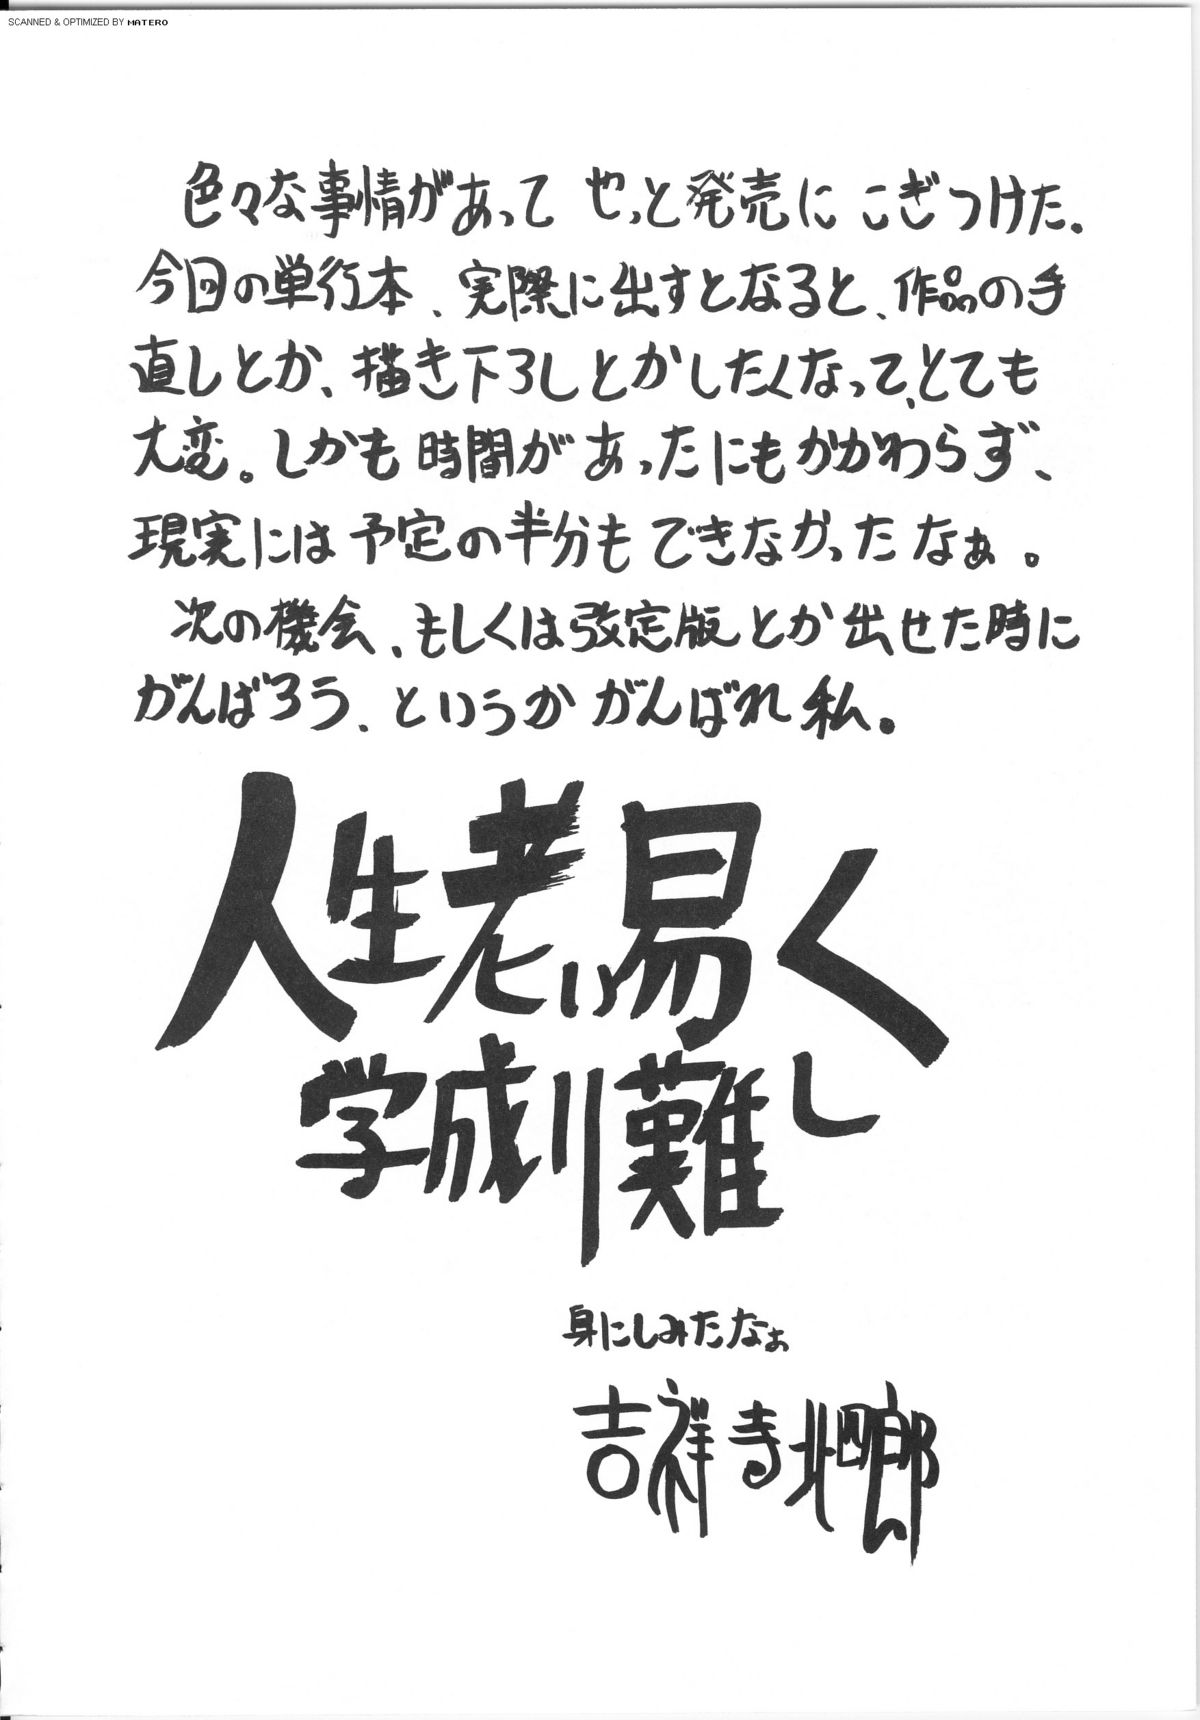 SCANNED & OPTIMIZED BY MATERO
色々な事情があって やっと発売に こぎつけた.
今回の単行本、実際に出すとなると、作品の手
直しとか、描き下ろしとかしたくなって、とても
大変。しかも 時間が あったにもかかわらず、
現実には 予定の半分も できなかったなぁ。
次の機会、もしくは改定版とか出せた時に
がんばろう、というか がんばれ私。
人生老い易く
学成り難し
身にしみたなぁ
吉祥寺北四郎